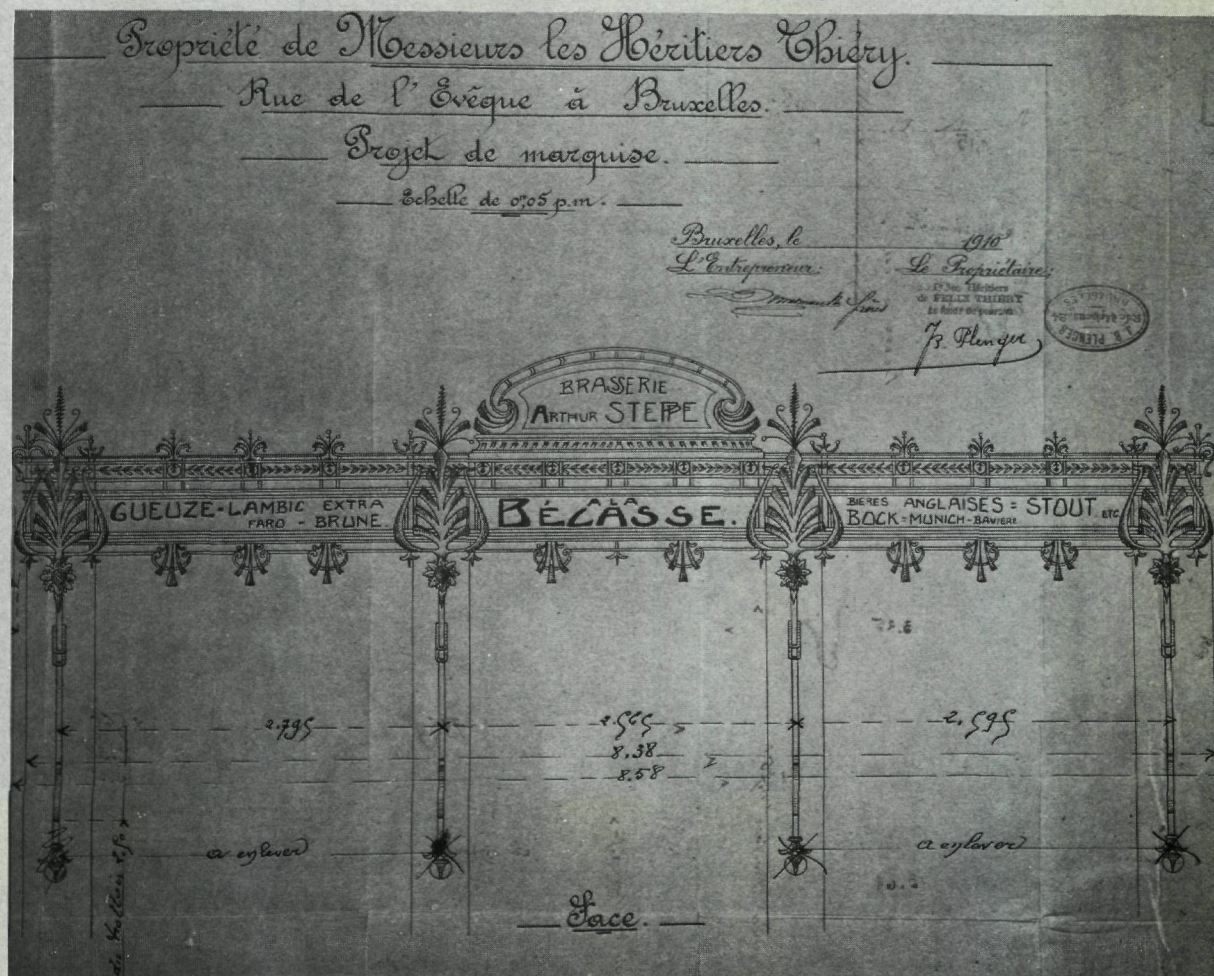 Propriété de Messieurs les Héritiers Thiéry.
Rue de l'Evêque à Bruxelles.
Projet de marquise.
Echelle de 0,m05 p.m.
Bruxelles, le 1910
L'Entrepreneur: Le Propriétaire:
Héritiers
de FELIX THIERY
B. Plenger
J. B. PLENGER
BRUXELLES
BRASSERIE
ARTHUR STEPPE
GUEUZE-LAMBIC EXTRA
FARO - BRUNE.
A LA
BÉCASSE.
BIERES ANGLAISES = STOUT ETC
BOCK=MUNICH-BAVIERE
2.795 2.565 2.595
8.38
8.58
a enlever a enlever
Face.